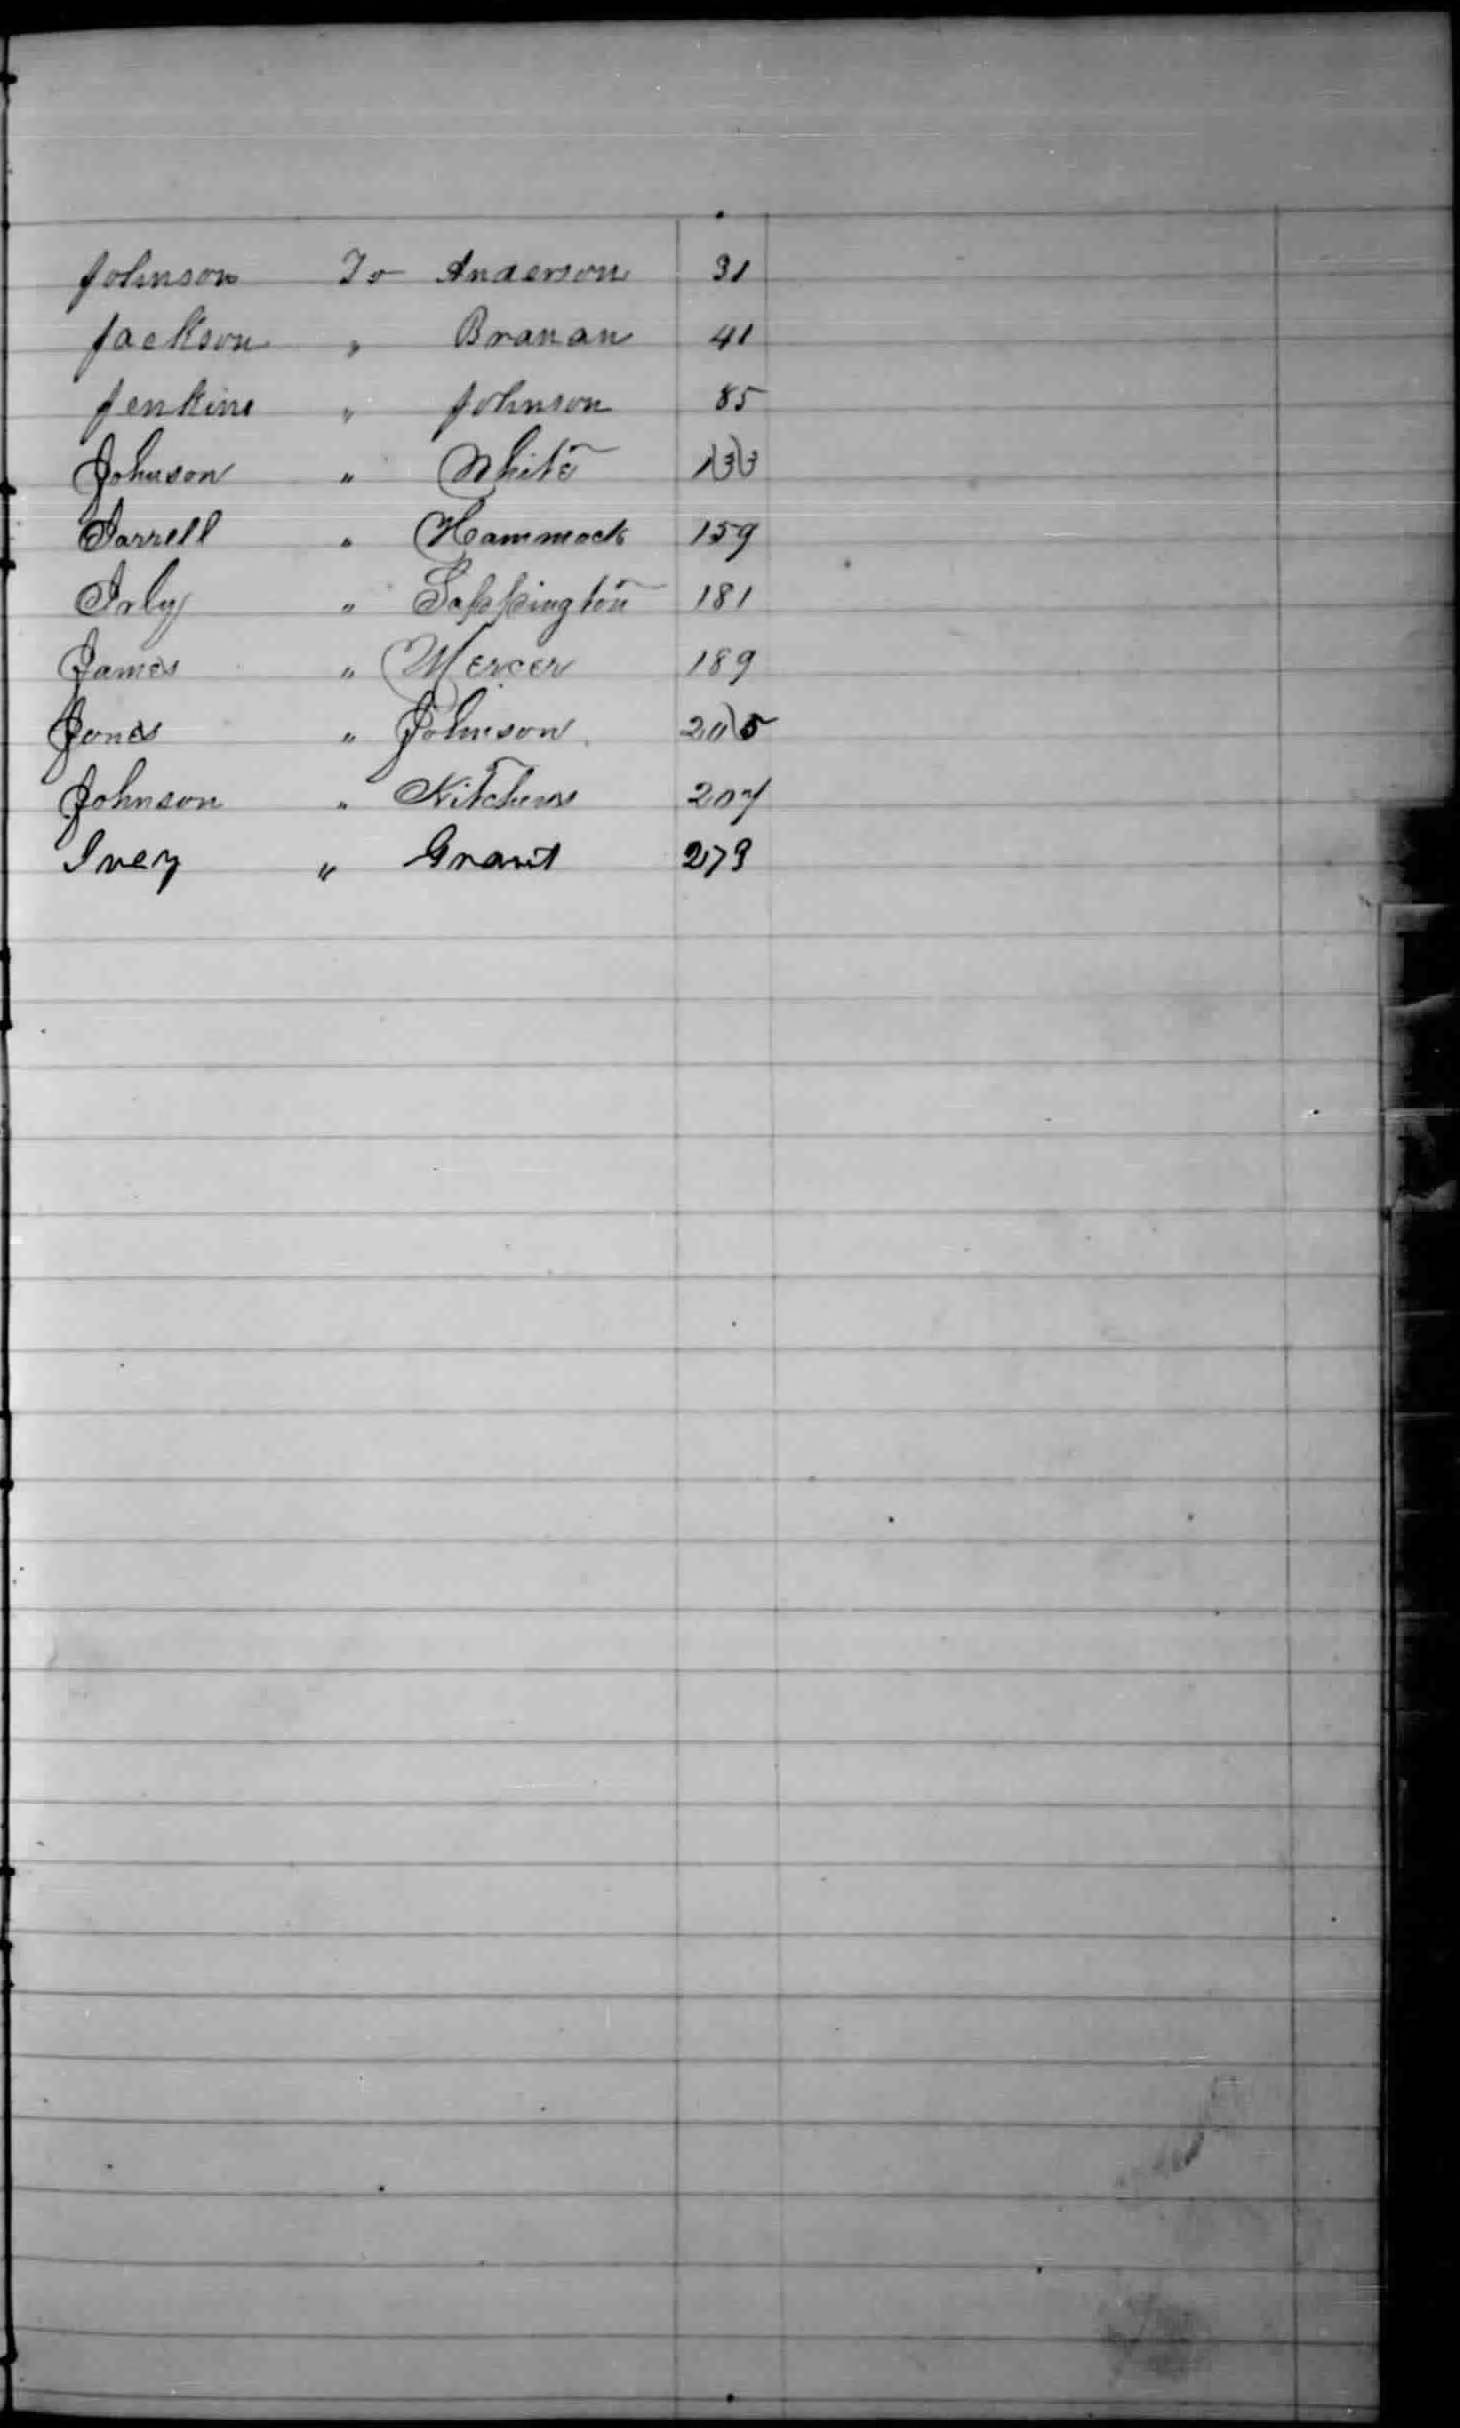 Johnson To Anderson 31
Jackson " Branan 41
Jenkins " Johnson 85
Johnson " White 133
Jarrell " Hammock 159
Irby " Sappington 181
James " Mercer 189
Jones " Johnson 205
Johnson " Kitchens 207
Ivey " Grant 279